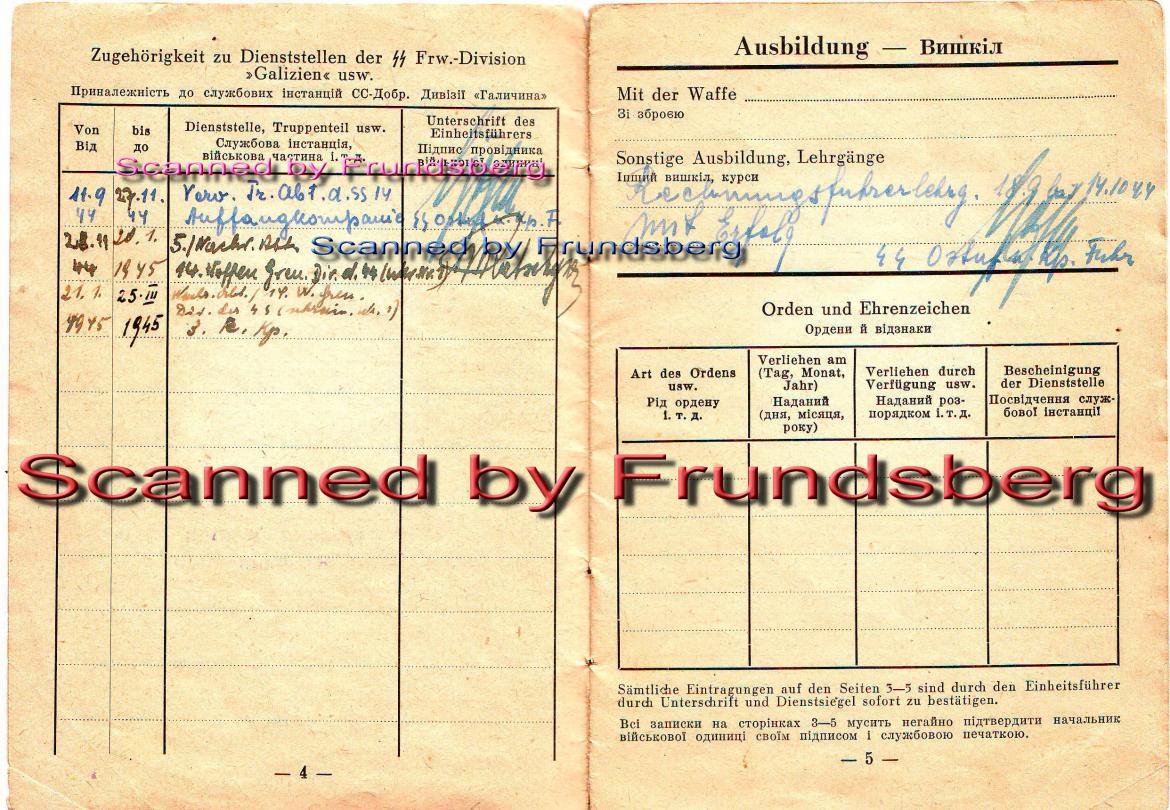 Zugehörigkeit zu Dienststellen der SS Frw.-Division
»Galizien« usw.
Приналежність до службових інстанцій СС-Добр. Дивізії «Галичина»
Von
Від
bis
до
Dienststelle, Truppenteil usw.
Службова інстанція,
військова частина і. т. д.
Unterschrift des
Einheitsführers
Підпис провідника
військової одиниці
Scanned by Frundsberg
11.9 27.11. Verw. Tr. Abt. d. SS 14
44 44 Auffangkompanie SS Ostuf. u. Kp. F.
28.11 20.1. 5./Nachr. Abt.
Scanned by Frundsberg
44 1945 14. Waffen Gren. Div. d. SS (ukr. Nr. 1)
21.1. 25.III Nachr. Abt./14. W. Gren.
Div. der SS (ukrain. Nr. 1)
1945 1945 3. Kp.
— 4 —
Ausbildung — Вишкіл
Mit der Waffe
Зі зброєю
Sonstige Ausbildung, Lehrgänge
Інший вишкіл, курси
Rechnungsführerlehrg. 18.9 14.10 44
mit Erfolg
SS Ostuf. u. Kp. Fuhr
Orden und Ehrenzeichen
Ордени й відзнаки
Art des Ordens
usw.
Рід ордену
і. т. д.
Verliehen am
(Tag, Monat,
Jahr)
Наданий
(дня, місяця,
року)
Verliehen durch
Verfügung usw.
Наданий роз-
порядком і. т. д.
Bescheinigung
der Dienststelle
Посвідчення служ-
бової інстанції
Scanned by Frundsberg
Sämtliche Eintragungen auf den Seiten 3—5 sind durch den Einheitsführer
durch Unterschrift und Dienstsiegel sofort zu bestätigen.
Всі записки на сторінках 3—5 мусить негайно підтвердити начальник
військової одиниці своїм підписом і службовою печаткою.
— 5 —